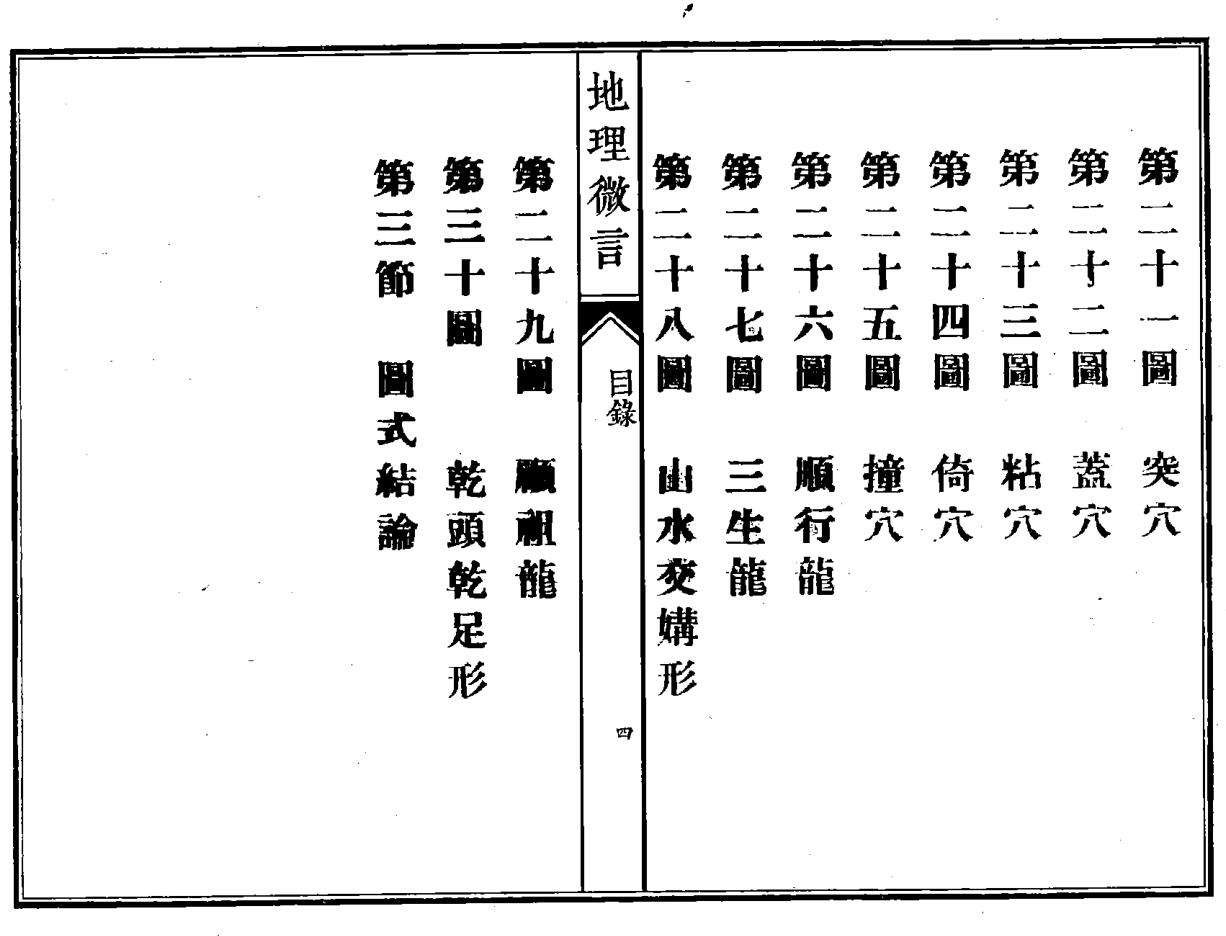 第二十一圖　突穴
第二十二圖　蓋穴
第二十三圖　粘穴
第二十四圖　倚穴
第二十五圖　撞穴
第二十六圖　順行龍
第二十七圖　三生龍
第二十八圖　山水交媾形
地理微言
目錄
四
第二十九圖　順祖龍
第三十圖　乾頭乾足形
第三節　圖式結論